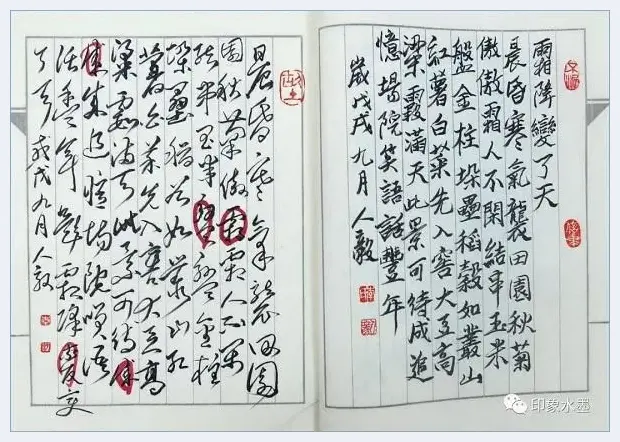 霜降變了天
晨昏寒氣襲田園秋菊
傲傲霜人不閑結串玉米
盤金柱垛壘稻穀如叢山
紅薯白菜先入窖大豆高
梁霧滿天此景可待成追
憶場院笑語話豐年
歲戊戌九月人毅
晨昏寒氣襲田園
園秋菊傲霜人不閑
結串玉米盤金柱
垛壘稻穀如叢山紅
薯白菜先入窖大豆高
粱霧滿天此景可待成
成追憶場院笑語
話豐年霜降變
了天歲戊戌九月人毅
印象水墨